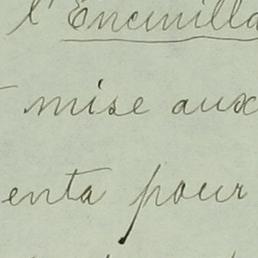 l'Encinilla
mise aux
enta pour